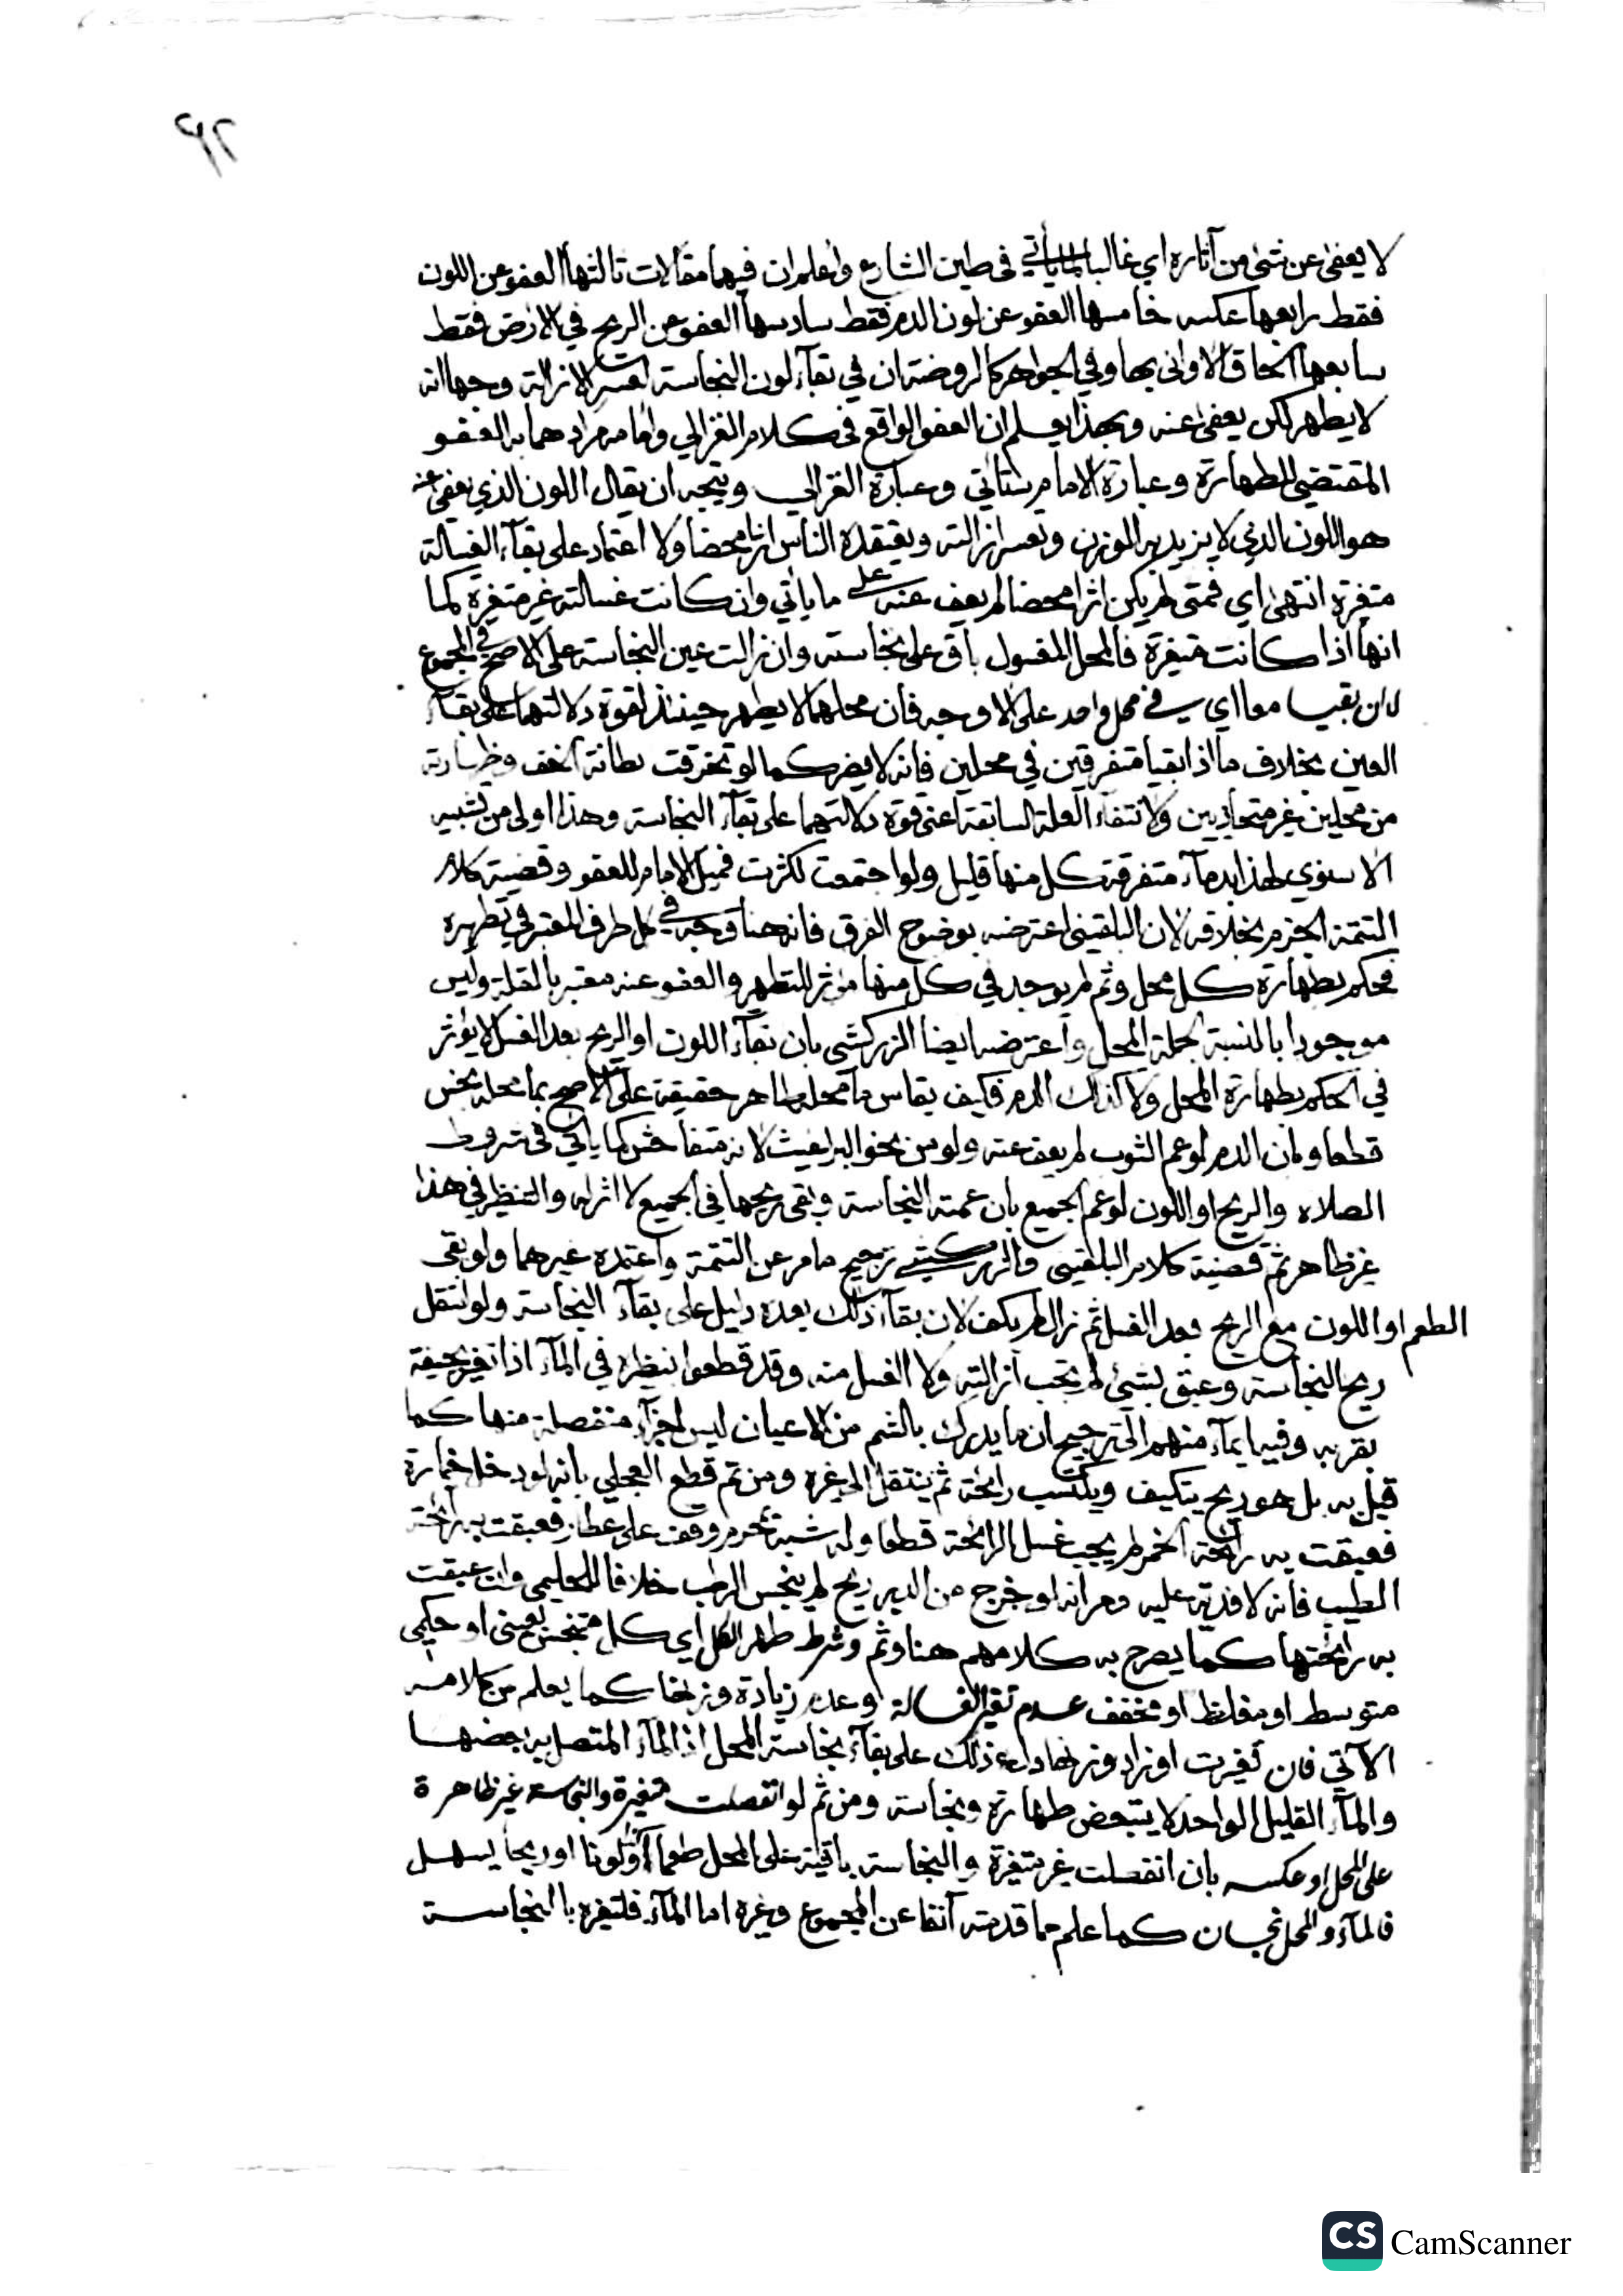 ٤٢
لا يعفى عن شئ من آثاره اي غالبا لما يأتي في طين الشارع واعلم ان فيها مقالات ثالثها العفو عن اللون
فقط رابعها عكسه خامسها العفو عن لون الدم فقط سادسها العفو عن الريح في الارض فقط
سابعها الحاق الاواني بها وفي الجواهر كالروضة ان في بقآء لون النجاسة لعسر الازالة وجها انه
لا يطهر لكن يعفى عنه وبهذا يعلم ان العفو الواقع في كلام الغزالي وامامه مرادهما به العفو
المقتضي للطهارة وعبارة الامام ستأتي وعبارة الغزالي ويتجه ان يقال اللون الذي يعفى عنه
هو اللون الذي لا يزيد به الوزن وتعسر ازالته ويعتقده الناس اثرا محضا ولا اعتماد على بقآء الغسالة
متغيرة انتهى اي فمتى لم يكن اثرا محضا لم يعف عنه على ما يأتي وان كانت غسالته غير متغيرة كما
انها اذا كانت متغيرة فالمحل المغسول باق على نجاسته وان زالت عين النجاسة على الاصح في المجموع
لا ان بقيا معا اي في محل واحد على الاوجه فان محلهما لا يطهر حينئذ لقوة دلالتهما على بقاء
العين بخلاف ما اذا بقيا متفرقين في محلين فانه لا يضر كما لو تخرقت بطانة الخف وظهارته
من محلين غير متحاذيين ولانتفاء العلة السابقة اعني قوة دلالتهما على بقآء النجاسة وهذا اولى من تشبيه
الاسنوي لهذا بدمآء متفرقة كل منها قليل ولو اجتمعت لكثرت فميل الامام للعفو وقضية كلام
التتمة الجزم بخلافه لان البلقيني اعترضه بوضوح الفرق فانه هنا وجد في كل طرف المعتبر في تطهيره
فحكم بطهارة كل محل وثم لم يوجد في كل منها مؤثر للتطهير والعفو عنه معتبر بالقلة وليس
موجودا بالنسبة لجملة المحل واعترضه ايضا الزركشي بان بقآء اللون او الريح بعد الغسل لا يؤثر
في الحكم بطهارة المحل ولا كذلك الدم فكيف يقاس ما محله طاهر حقيقة على الاصح بما محله نجس
قطعا ولان الدم لو عم الثوب لم يعف عنه ولو من نحو البراغيث لانه متفاحش كما يأتي في شروط
الصلاه والريح او اللون لو عم الجميع بان عمته النجاسة وبقي ريحها في الجميع لا اثر له والتنظير في هذا
غير ظاهر ثم قضية كلام البلقيني والزركشي ترجيح ما مر عن التتمة واعتمده غيرهما ولو بقي
الطعم او اللون مع الريح بعد الغسل ثم زال لم يكف لان بقآء ذلك بعده دليل على بقآء النجاسة ولو انتقل
ريح النجاسة وعبق بشئ لم تجب ازالته ولا الغسل منه وقد قطعوا بنظيره في المآء اذا تغير بجيفة
بقربه وفيه ايمآء منهم الى ترجيح ان ما يدرك بالشم من الاعيان ليس لاجزآء منفصلة منها كما
قيل به بل هو ريح يتكيف ويكتسب رائحة ثم ينتقل الى غيره ومن ثم قطع العجلي بانه لو دخل خمارة
فعبقت به رآئحة الخمر لم يجب غسل الرائحة قطعا وله شبه بمحرم وقف على عطار فعبقت به رآئحة
الطيب فانه لا فدية عليه ومر انه لو خرج من الدبر ريح لم ينجس الرطب خلافا للحليمي وان عبقت
به رائحتها كما يصرح به كلامهم هنا وثم وشرط طهر الكل اي كل متنجس بعيني او حكمي
متوسط او مغلظ او مخفف عدم تغير الغسالة وعدم زيادة وزنها كما يعلم من كلامه
الآتي فان تغيرت او زاد وزنها دل ذلك على بقآء نجاسة المحل اذ المآء المتصل به بعضها
والمآء القليل الواحد لا يتبعض طهارة ونجاسة ومن ثم لو انفصلت متغيرة والنجاسة غير ظاهرة
على المحل او عكسه بان انفصلت غير متغيرة والنجاسة باقية على المحل طعما او لونا او ريحا يسهل
فالمآء والمحل نجسان كما علم مما قدمته آنفا عن المجموع وغيره اما المآء فلتغيره بالنجاسة
CS CamScanner